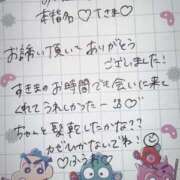 本指名♡すさま♡
お誘い頂いてありがとう
ございました!
すきまのお時間でも会いに来て
くれてうれしかったー♡
ちゃんと髪乾したかな??
カゼしかないでね!